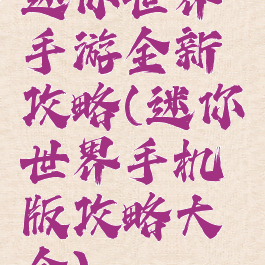 迷你世界
手游全新
攻略(迷你
世界手机
版攻略大
全)